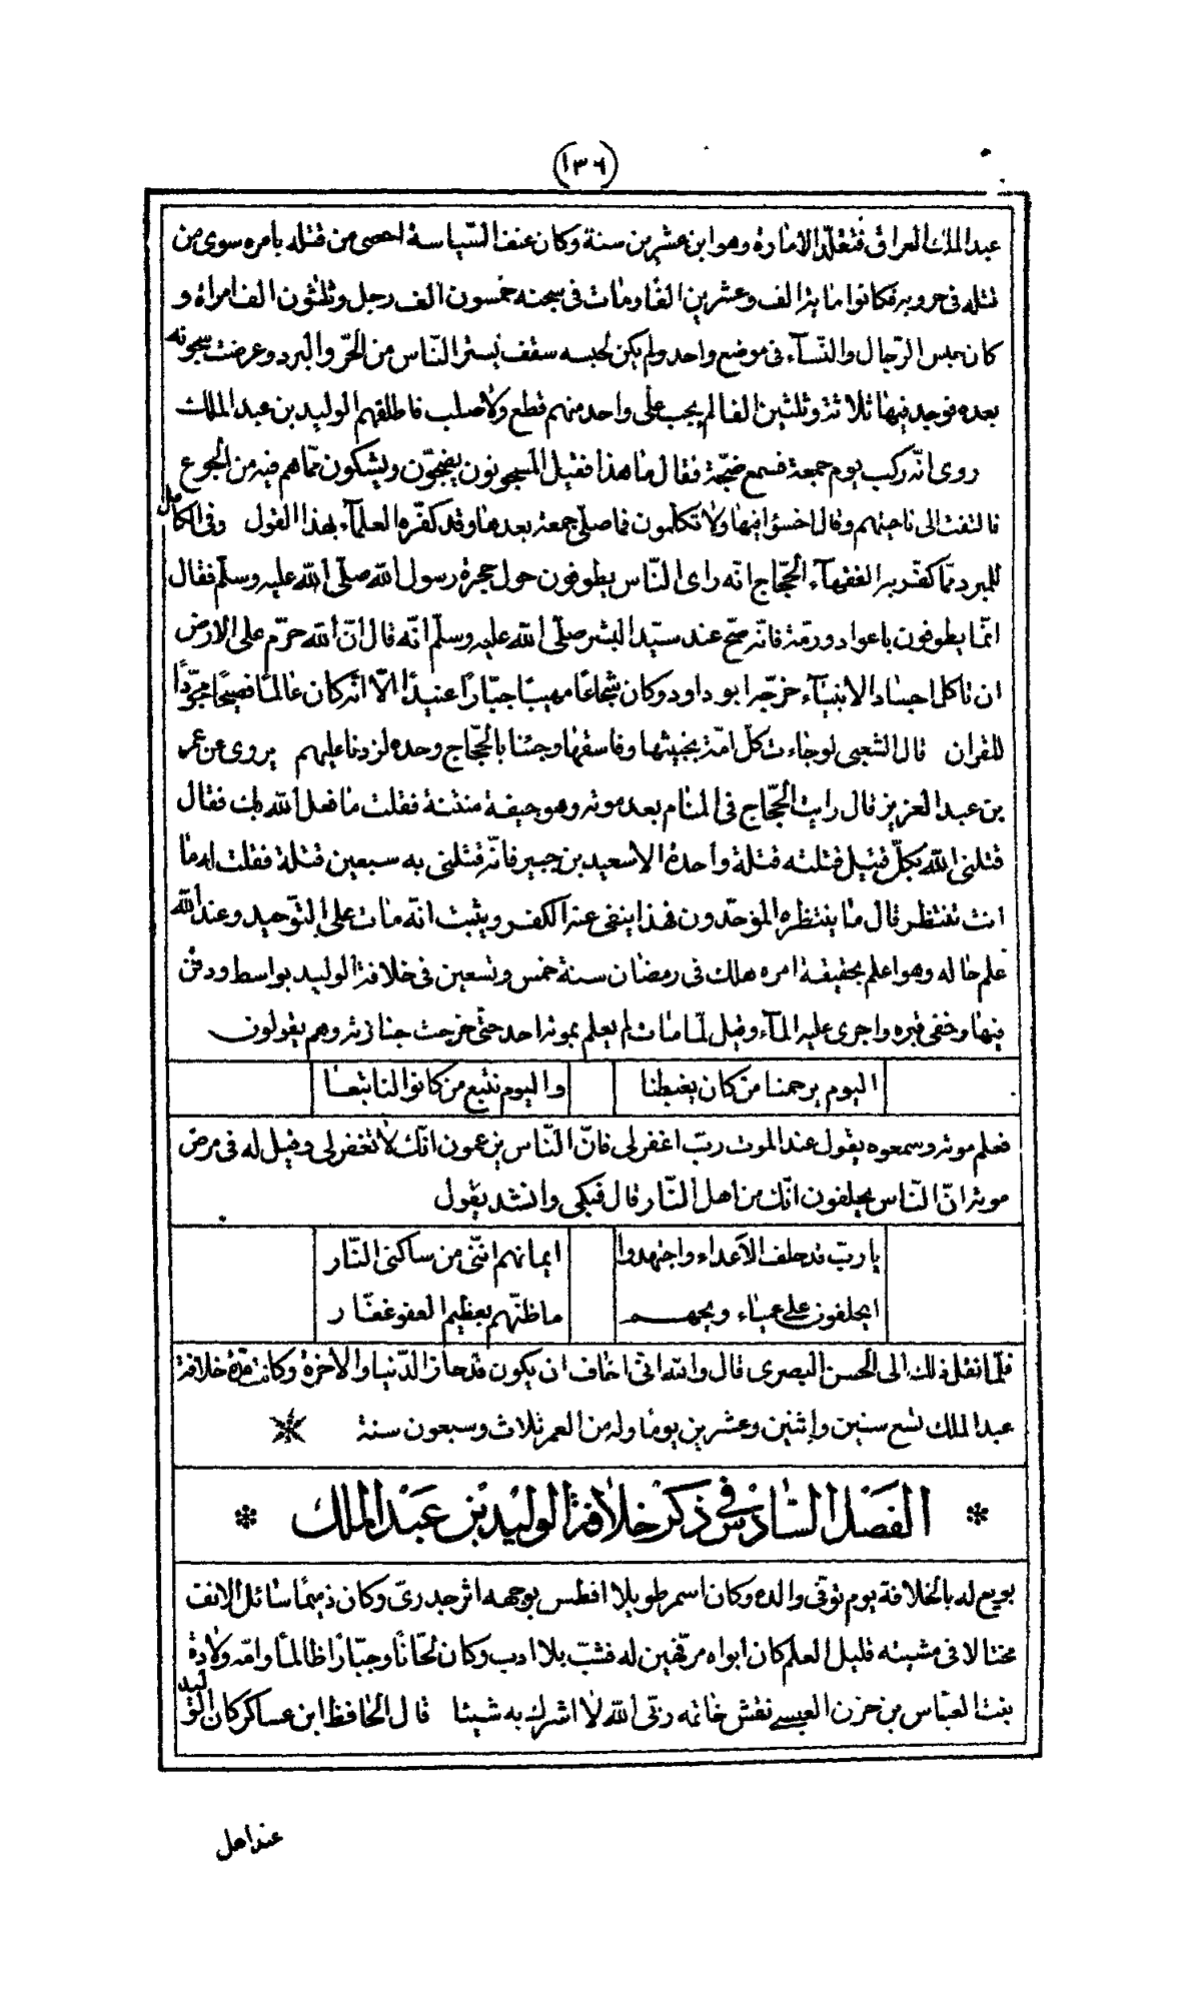 (١٣٦)
عبد الملك العراق فتقلّد الامارة وهو ابن عشرين سنة وكان عنف السّياسة احصى من قتله بامره سوى من
قتله فى حروبه فكانوا مائة الف وعشرين الفًا ومات فى سجنه خمسون الف رجل وثلثون الف امراة و
كان يحبس الرّجال والنّسآء فى موضع واحد ولم يكن لحبسه سقف يستر النّاس من الحرّ والبرد وعرضت سجونه
بعده فوجد فيها ثلاثة وثلثين الفا لم يجب على واحد منهم قطع ولا صلب فاطلقهم الوليد بن عبد الملك
روى انّه ركب يوم جمعة فسمع ضجّة فقال ما هذا فقيل المسجونون يضجّون ويشكون ممّا هم فيه من الجوع
فالتفت الى ناحيتهم وقال اخسؤا فيها ولا تكلمون فما صلّى جمعة بعدها وقد كفّره العلمآء بهذا القول وفى الكامل
للمبرد ممّا كفّر به الفقهآء الحجّاج انّه راى النّاس يطوفون حول حجرة رسول الله صلّى الله عليه وسلّم فقال
انّما يطوفون باعواد ورمّة فانّه صحّ عند سيّد البشر صلّى الله عليه وسلّم انّه قال انّ الله حرّم على الارض
ان تاكل اجساد الانبيآء خرّجه ابو داود وكان شجاعًا مهيبًا جبّارًا عنيدًا الّا انّه كان عالمًا فصيحًا مجوّدًا
للقران قال الشعبى لو جاءت كلّ امّة بخبيثها وفاسقها وجئنا بالحجّاج وحده لزدنا عليهم يروى عن عمر
بن عبد العزيز قال رايت الحجّاج فى المنام بعد موته وهو جيفة منتنة فقلت ما فعل الله بك فقال
قتلنى الله بكلّ قتيل قتلته قتلة واحدة الا سعيد بن جبير فانّه قتلنى به سبعين قتلة فقلت له ما
انت تنتظر قال ما ينتظره الموحّدون فهذا ينفى عنه الكفر ويثبت انّه مات على التوحيد وعند الله
علم حاله وهو اعلم بحقيقة امره هلك فى رمضان سنة خمس وتسعين فى خلافة الوليد بواسط ودفن
فيها وخفى قبره واجرى عليه المآء وقيل لمّا مات لم يعلم بموته احد حتّى خرجت جنازته وهم يقولون
اليوم يرحمنا من كان يغبطنا واليوم نتبع من كانوا لنا تبعا
فعلم موته وسمعوه يقول عند الموت ربّ اغفر لى فانّ النّاس يزعمون انّك لا تغفر لى وقيل له فى مرض
موته انّ النّاس يحلفون انّك من اهل النّار قال فبكى وانشد يقول
يا ربّ قد حلف الاعداء واجتهدوا ايمانهم انّنى من ساكنى النّار
ايحلفون على عمياء ويحهم ما ظنّهم بعظيم العفو غفّار
فلمّا نقل ذلك الى الحسن البصرى قال والله انّى اخاف ان يكون قد حاز الدّنيا والآخرة وكانت مدّة خلافة
عبد الملك تسع سنين واثنين وعشرين يومًا وله من العمر ثلاث وسبعون سنة
* الفصل السّادس فى ذكر خلافة الوليد بن عبد الملك *
بويع له بالخلافة يوم توفّى والده وكان اسمر طويلا افطس بوجهه اثر جدرىّ وكان ذميمًا سائل الانف
مختالا فى مشيته قليل العلم كان ابواه مرفّهين له فشبّ بلا ادب وكان لحّانًا وجبّارًا ظالمًا وامّه ولادة
بنت العبّاس بن حزن العبسى نقش خاتمه ربّى الله لا اشرك به شيئا قال الحافظ ابن عساكر كان الوليد
عند اهل